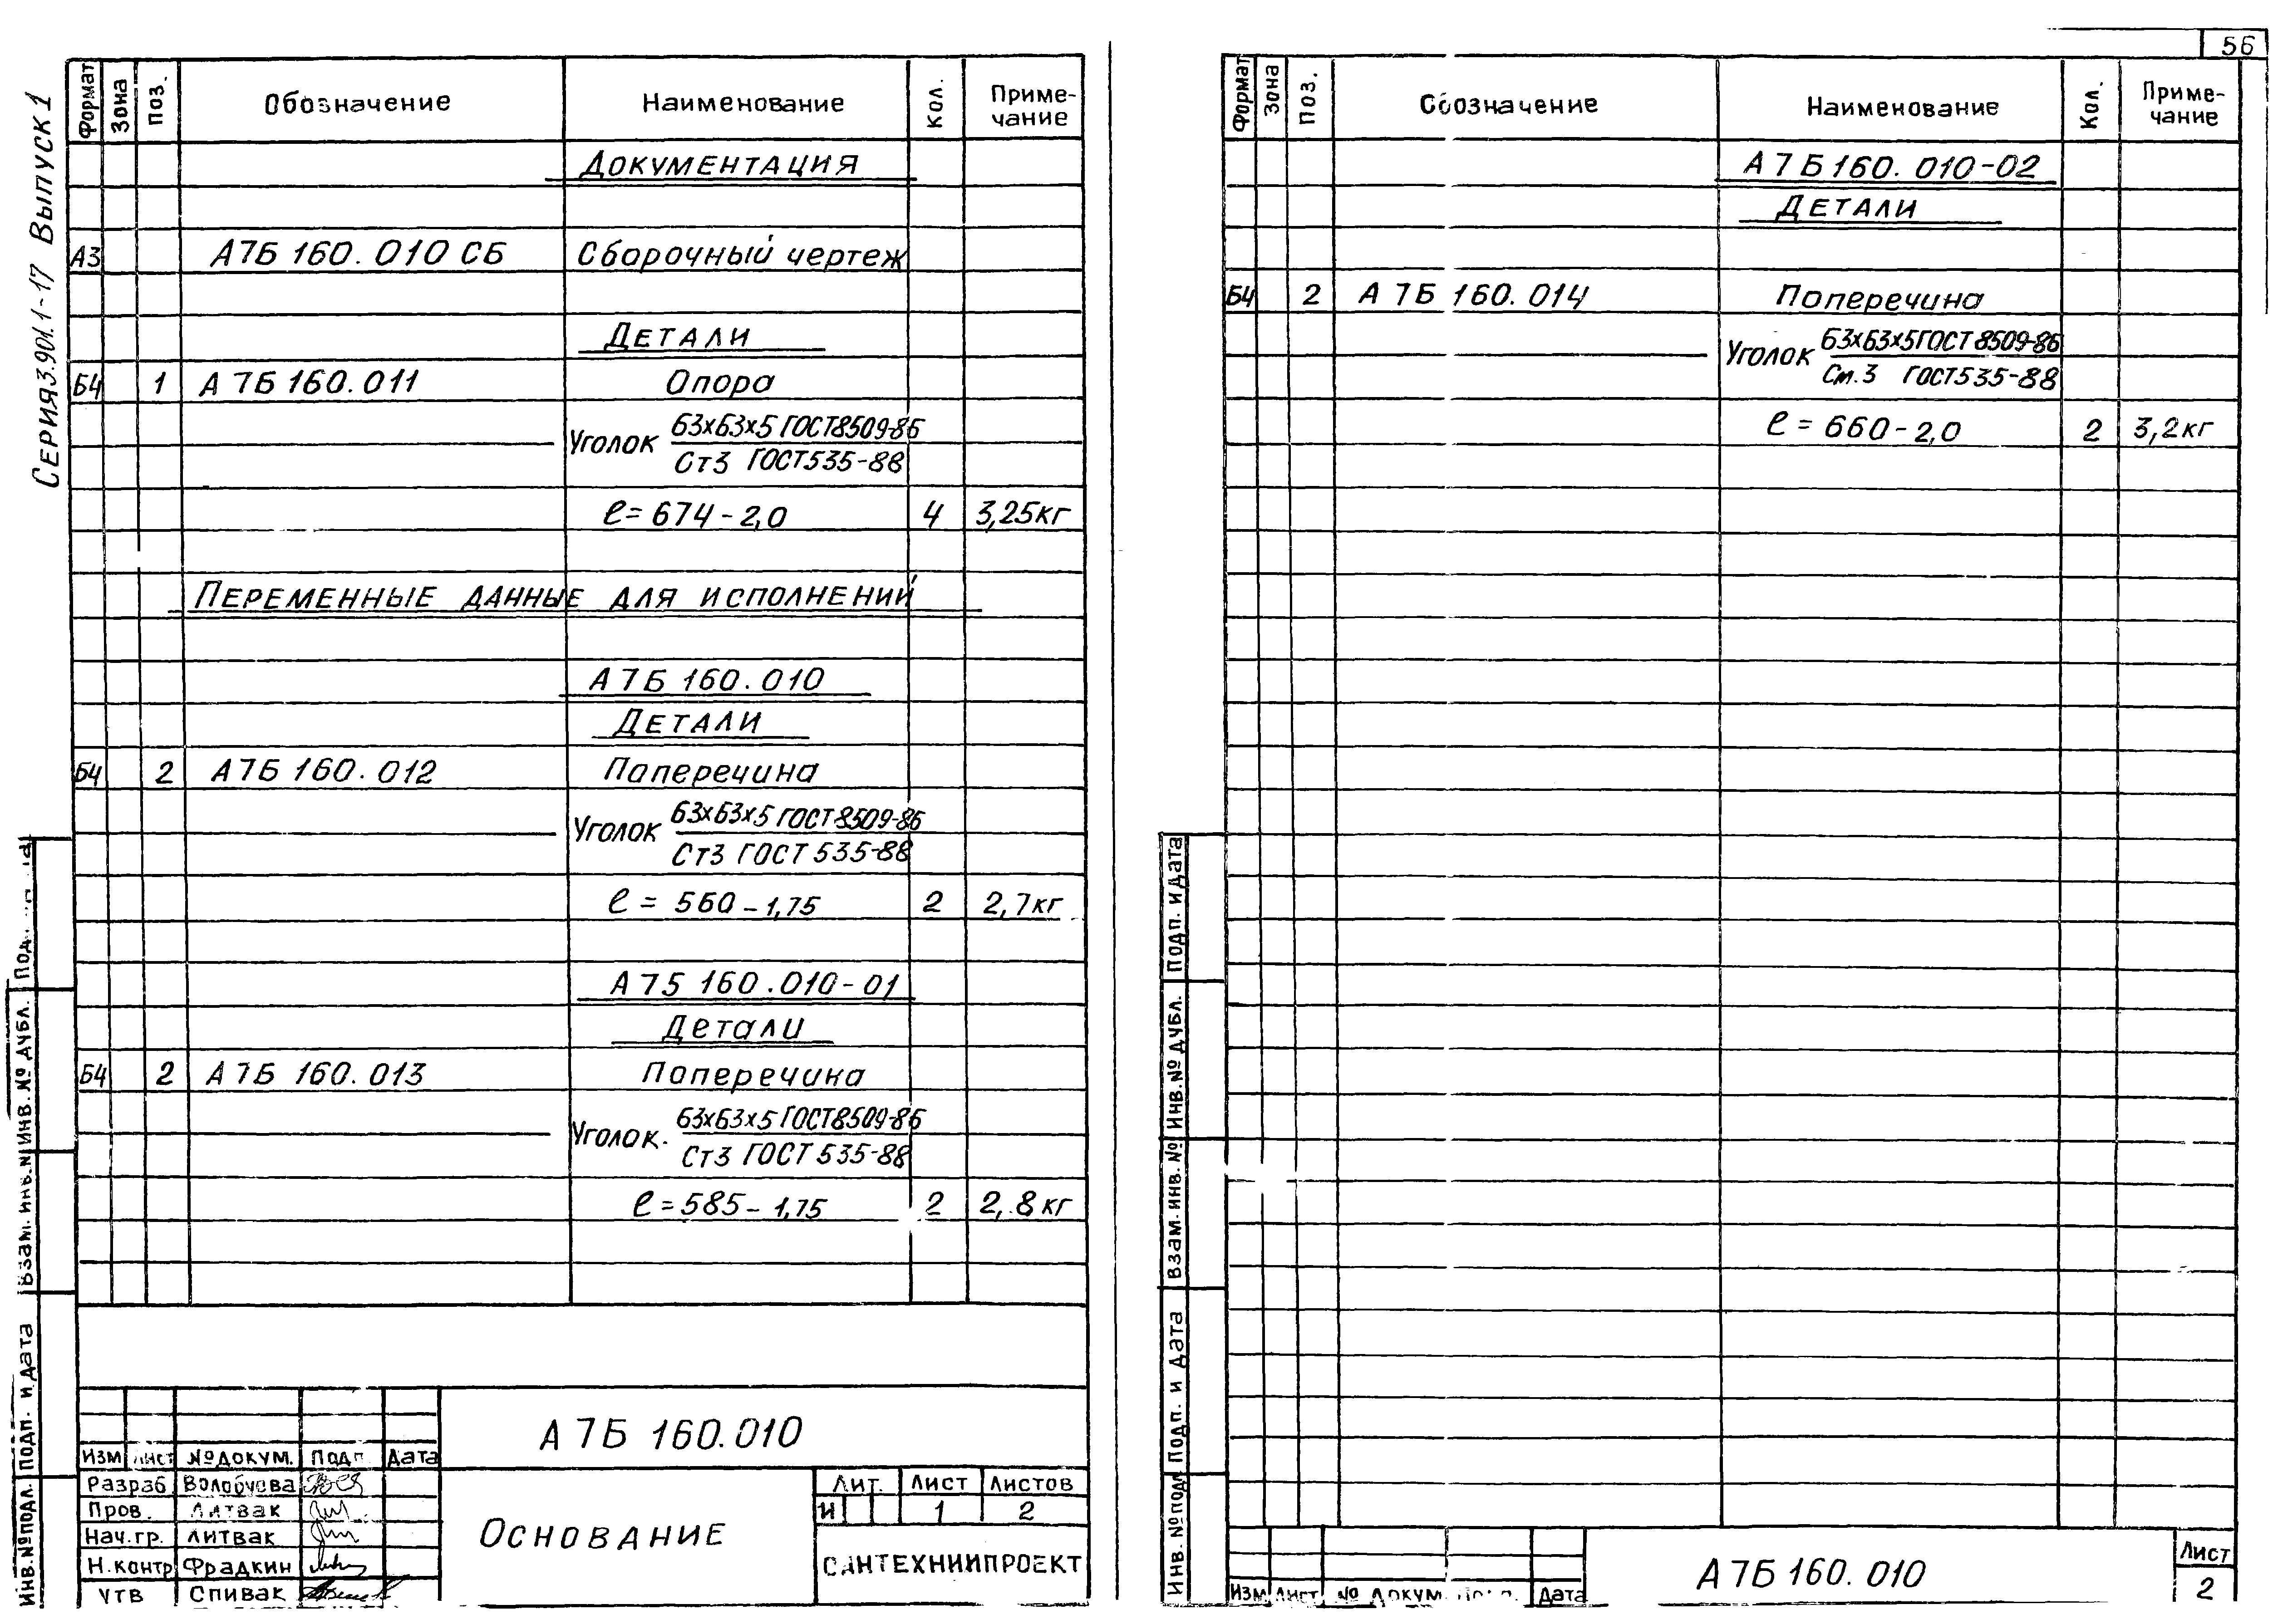 56
Серия 3.901.1-17 Выпуск 1
Формат Зона Поз. Обозначение Наименование Кол. Приме-
чание
Документация
А3 А7Б 160.010 СБ Сборочный чертеж
Детали
Б4 1 А7Б 160.011 Опора
Уголок 63х63х5 ГОСТ 8509-86
Ст3 ГОСТ 535-88
ℓ=674-2,0 4 3,25кг
Переменные данные для исполнений
А7Б 160.010
Детали
Б4 2 А7Б 160.012 Поперечина
Уголок 63х63х5 ГОСТ 8509-86
Ст3 ГОСТ 535-88
ℓ = 560-1,75 2 2,7кг
А75 160.010-01
Детали
Б4 2 А7Б 160.013 Поперечина
Уголок. 63х63х5 ГОСТ 8509-86
Ст3 ГОСТ 535-88
ℓ=585-1,75 2 2,8 кг
Инв.№подл. Подп. и дата Взам. инв.№ Инв.№ дубл. Под.
А7Б 160.010
Изм Лист №докум. Подп Дата
Разраб Волобуева
Пров. Литвак
Нач.гр. Литвак
Н.контр Фрадкин
Утв Спивак
Основание
Лит. Лист Листов
И 1 2
САНТЕХНИИПРОЕКТ
Формат Зона Поз. Обозначение Наименование Кол. Приме-
чание
А7Б 160.010-02
Детали
Б4 2 А7Б 160.014 Поперечина
Уголок 63х63х5 ГОСТ 8509-86
См.3 ГОСТ 535-88
ℓ = 660-2,0 2 3,2кг
Инв.№подл Подп. и дата Взам.инв.№ Инв.№дубл. Подп. и дата
Изм Лист № докум. Подп. Дата
А7Б 160.010
Лист
2